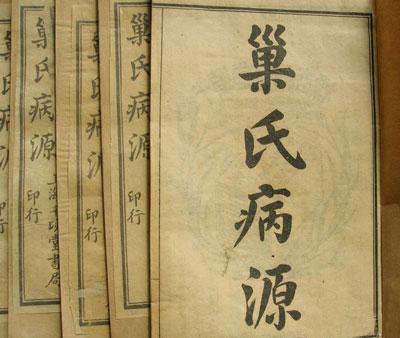 巢氏病源
巢氏病源
印行
巢氏病源
印行
巢氏病源
印行
上海千頃堂書局